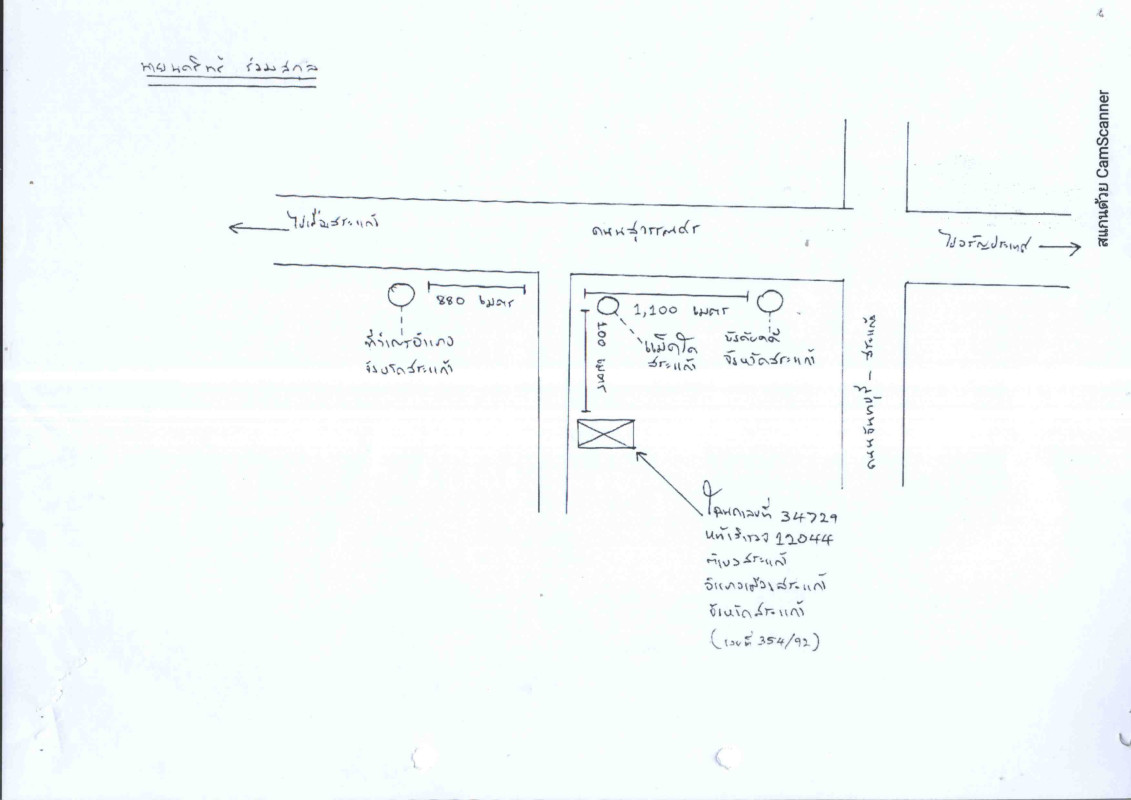 นายนครินทร์ ร่วมสกุล
ไปเมืองสระแก้ว
ถนนสุวรรณศร
ไปอรัญประเทศ
880 เมตร
1,100 เมตร
ที่ว่าการอำเภอ
จังหวัดสระแก้ว
100 เมตร
แม็คโค
สระแก้ว
บังคับคดี
จังหวัดสระแก้ว
ถนนจันทบุรี - สระแก้ว
โฉนดเลขที่ 34729
หน้าสำรวจ 12044
ตำบลสระแก้ว
อำเภอเมืองสระแก้ว
จังหวัดสระแก้ว
(เลขที่ 354/92)
สแกนด้วย CamScanner